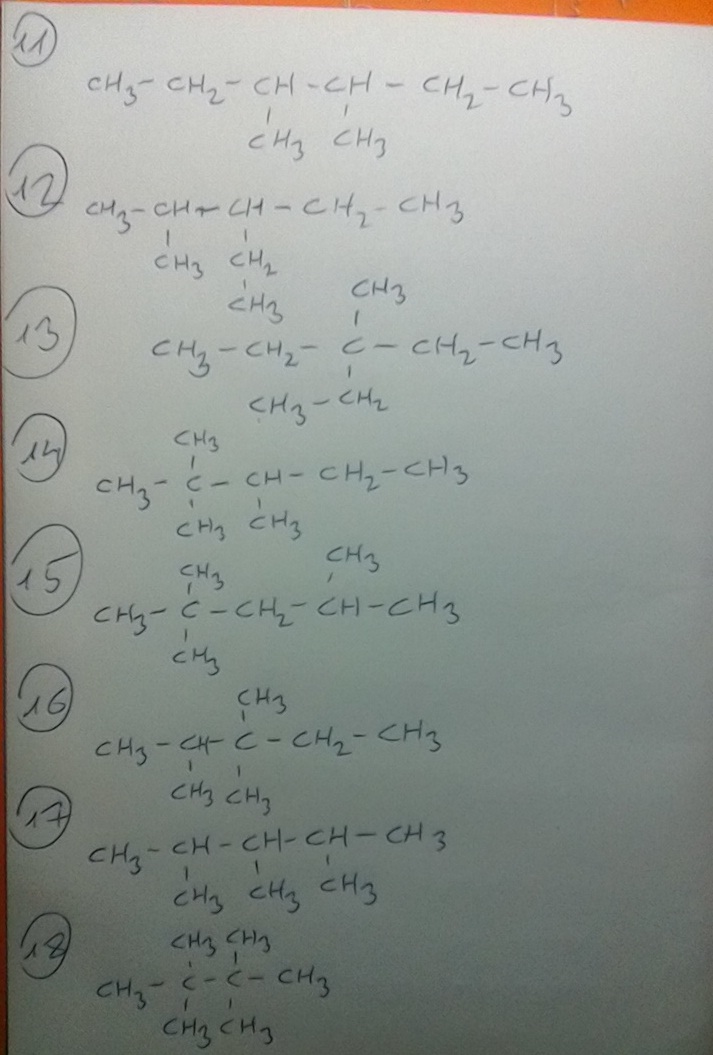 11
CH3- CH2- CH -CH - CH2- CH3
CH3 CH3
12
CH3- CH - CH - CH2- CH3
CH3 CH2
CH3
13
CH3
CH3 -CH2- C - CH2-CH3
CH3-CH2
14
CH3
CH3- C - CH- CH2-CH3
CH3 CH3
15
CH3 CH3
CH3- C -CH2- CH-CH3
CH3
16
CH3
CH3 -CH- C - CH2- CH3
CH3 CH3
17
CH3- CH - CH- CH - CH3
CH3 CH3 CH3
18
CH3 CH3
CH3- C - C - CH3
CH3 CH3